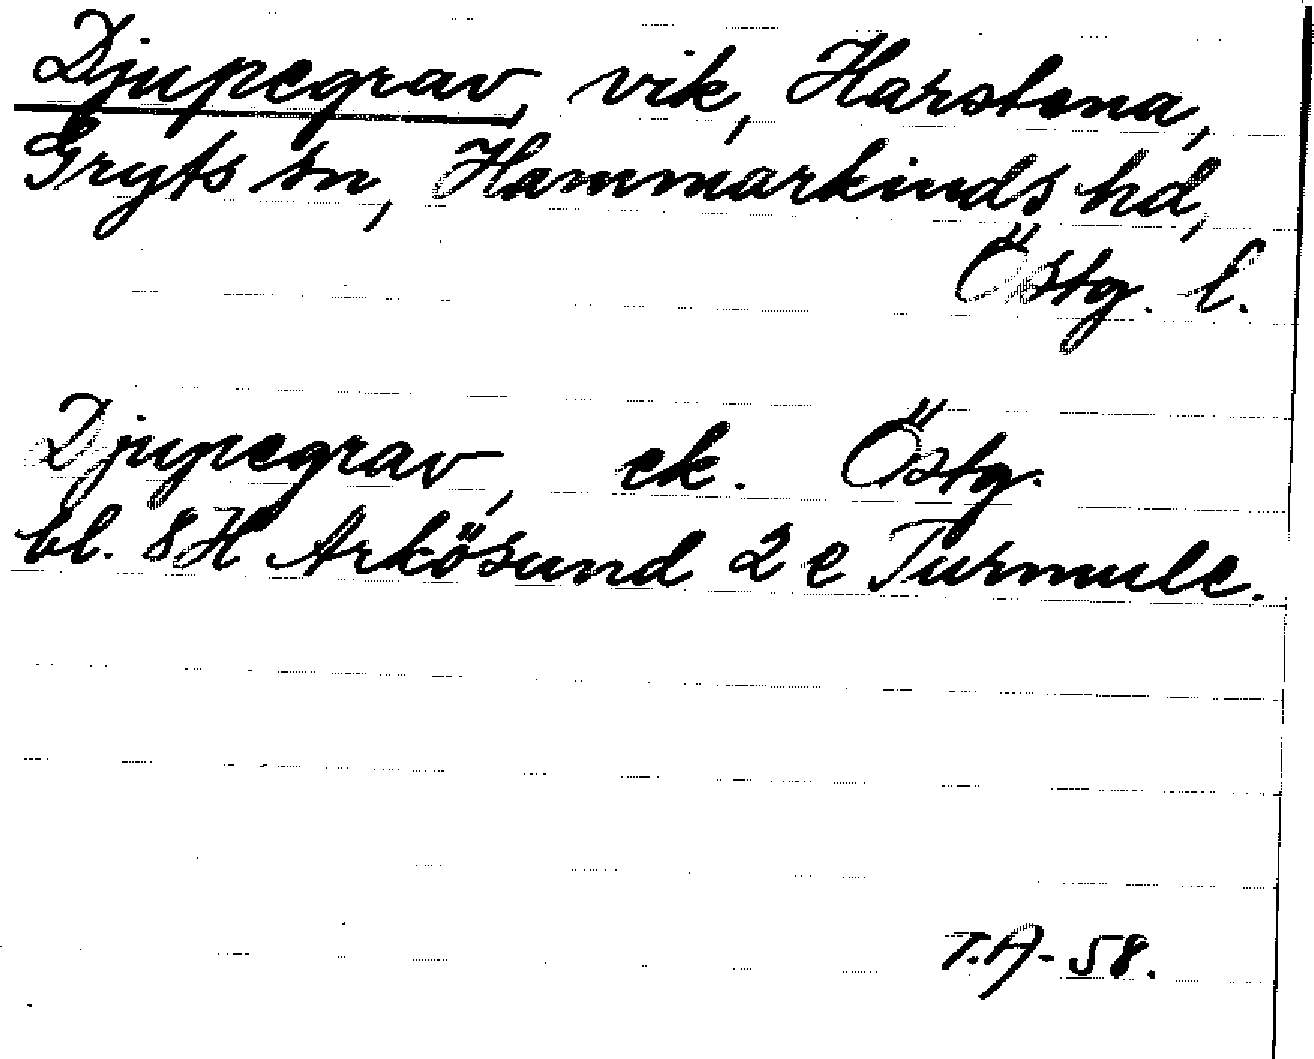 Djupegrav, vik, Harstena,
Gryts sn, Hammarkinds hd,
Östg. l.
Djupegrav, ek. Östg.
bl. 8H Arkösund 2 e Turmule.
T.A-58.